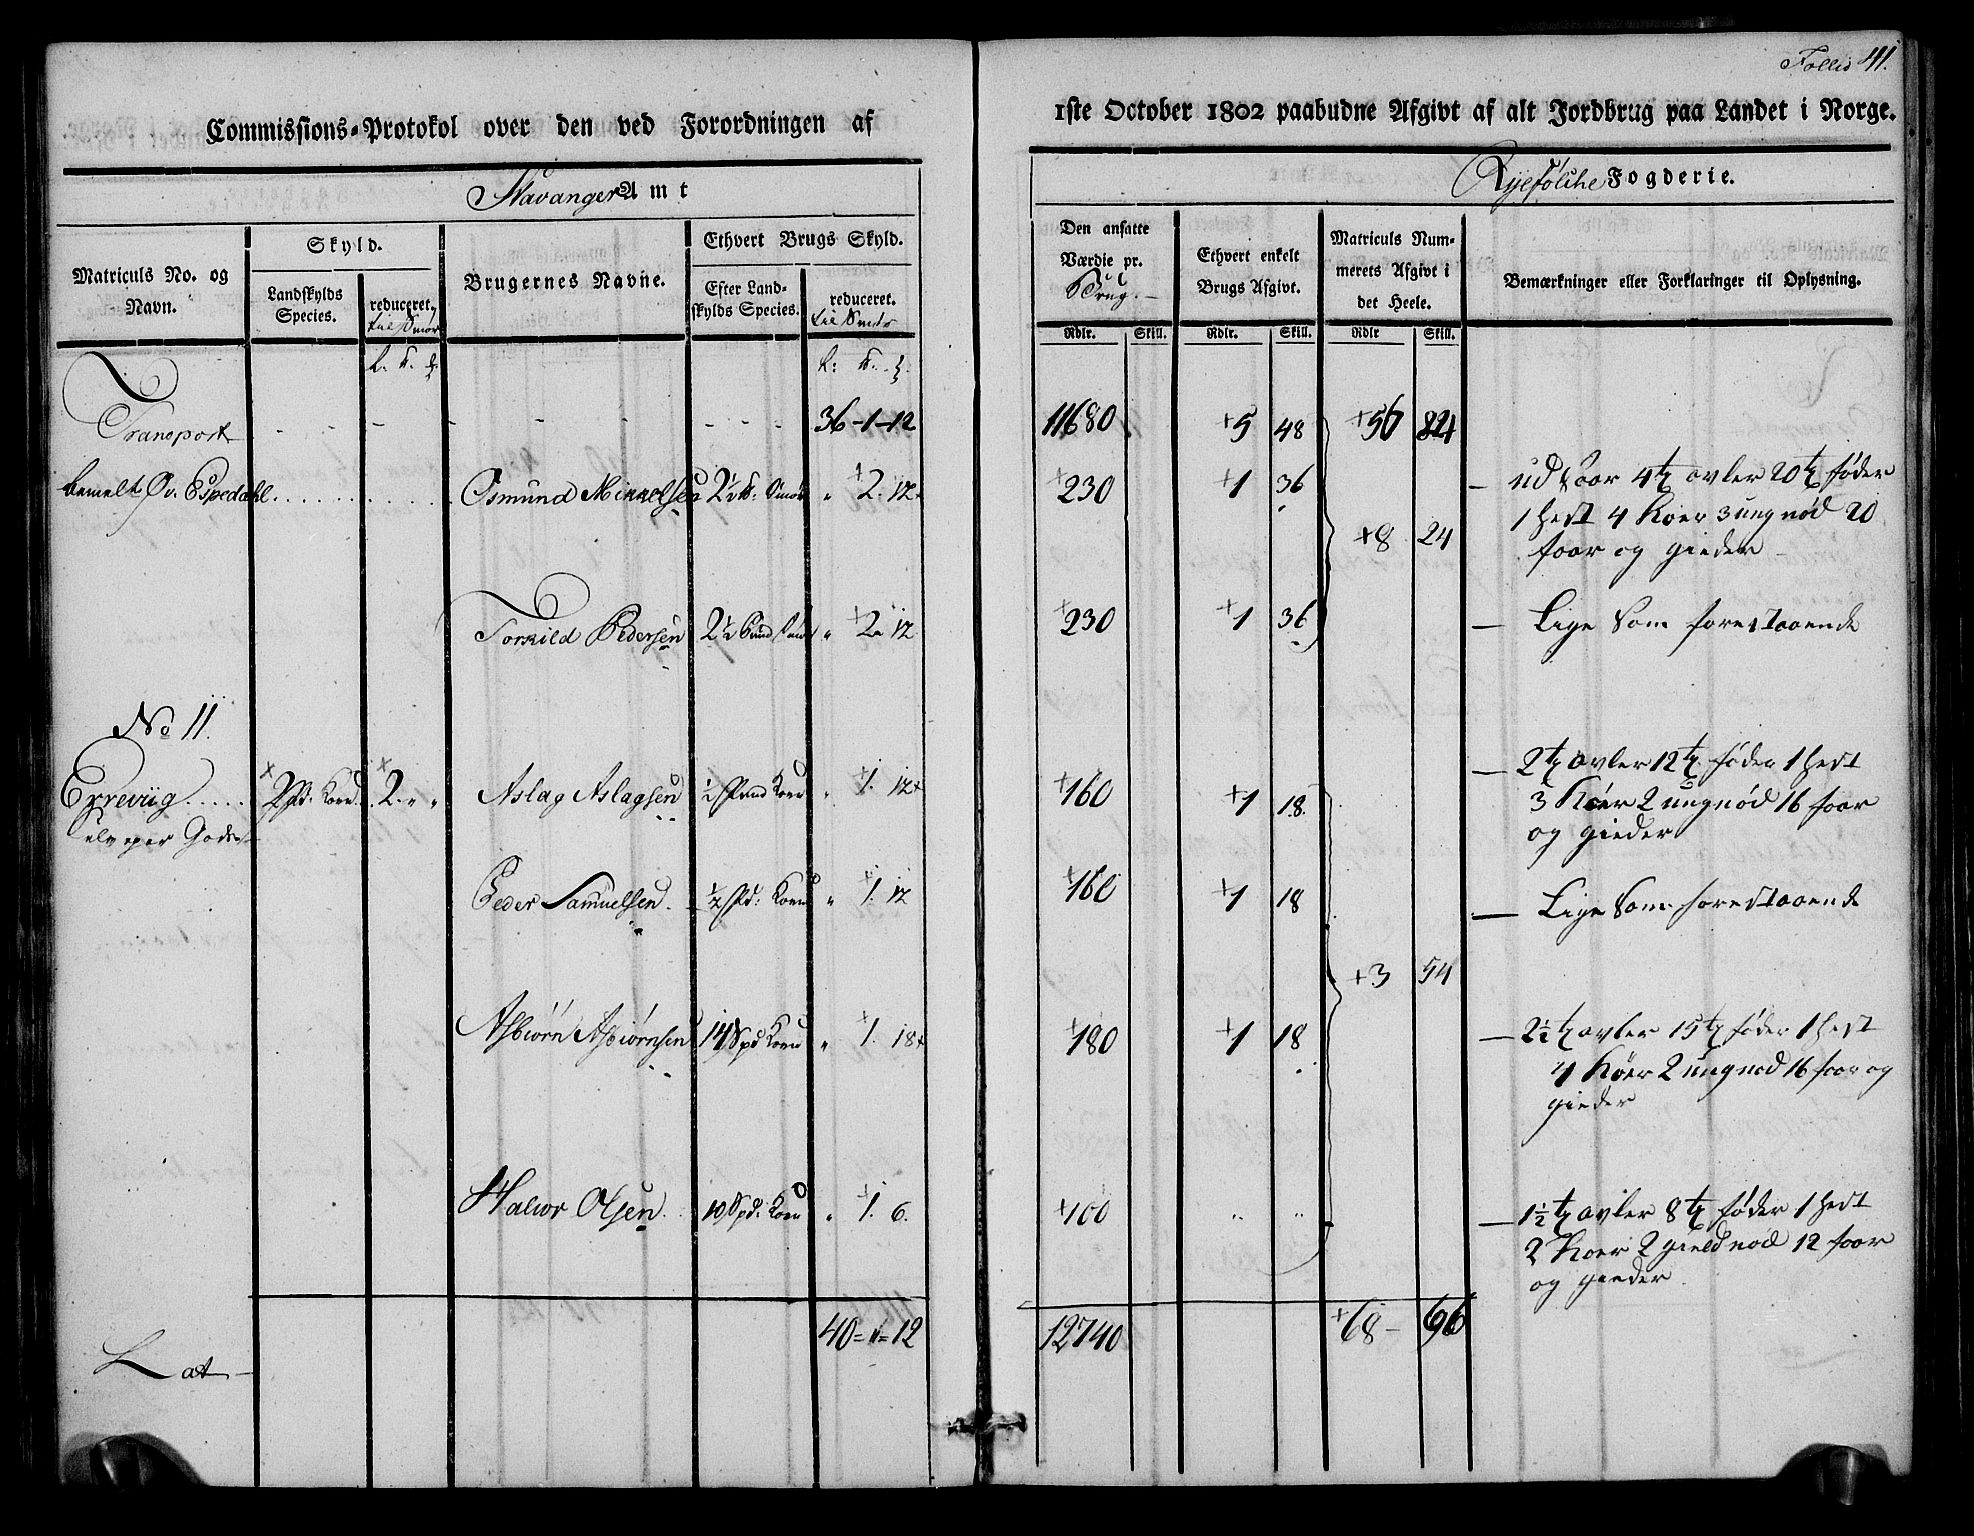 Follio 41.
Commissions-Protokol over den ved Forordningen af
1ste October 1802 paabudne Afgivt af alt Jordbrug paa Landet i Norge.
Stavanger Amt
Ryefölche Fogderie.
Matriculs No. og Navn.
Skyld.
Landskylds Species.
reduceret. til Smør
Brugernes Navne.
Ethvert Brugs Skyld.
Efter Landskylds Species.
reduceret. til Smør
Den ansatte Værdie pr. Brug.
Ethvert enkelt Brugs Afgivt.
Matriculs Nummerets Afgivt i det Heele.
Bemærkninger eller Forklaringer til Oplysning.
Rdlr. Skill. Rdlr. Skill. Rdlr Skill.
Transport - - - - - - - 36-1-12 11680 +5 48 +56 84
bemelt Øv. Espedahl Osmund Mikkelsen 2½ Smør " +2. 12 +230 +1 36 +8 24 — udsaar 4 tr avler 20 tr føder
1 hest 4 Koer 3 ungnød 20
faar og gieder
Torkild Pedersen 2½ Pund Smør " +2. 12 +230 +1 36 — Lige som forestaaende
No 11.
Erreviig 2 Pd. Korn 2. " " Aslag Aslagsen ½ Pund Korn " +1. 12 +160 +1 18. — 2 tr avler 12 tr føder 1 hest
3 Køer 2 ungnød 16 faar
og gieder
Gods
Peder Samuelsen ½ Pd: Korn " +1. 12 +160 +1 18 — Lige som forestaaende
+3 54
Asbiørn Asbiørnsen 14 Spd Korn " +1. 18 +180 +1 18 — 2½ tr avler 15 tr føder 1 hest
4 Køer 2 ungnød 16 faar og
gieder
Halvor Olsen 10 Spd: Korn " +1. 6. +100 " " — 1½ tr avler 8 tr føder 1 hest
2 Koer 2 gieldnød 12 faar
og gieder
Lat - 40="=12 12740 +68 - 96